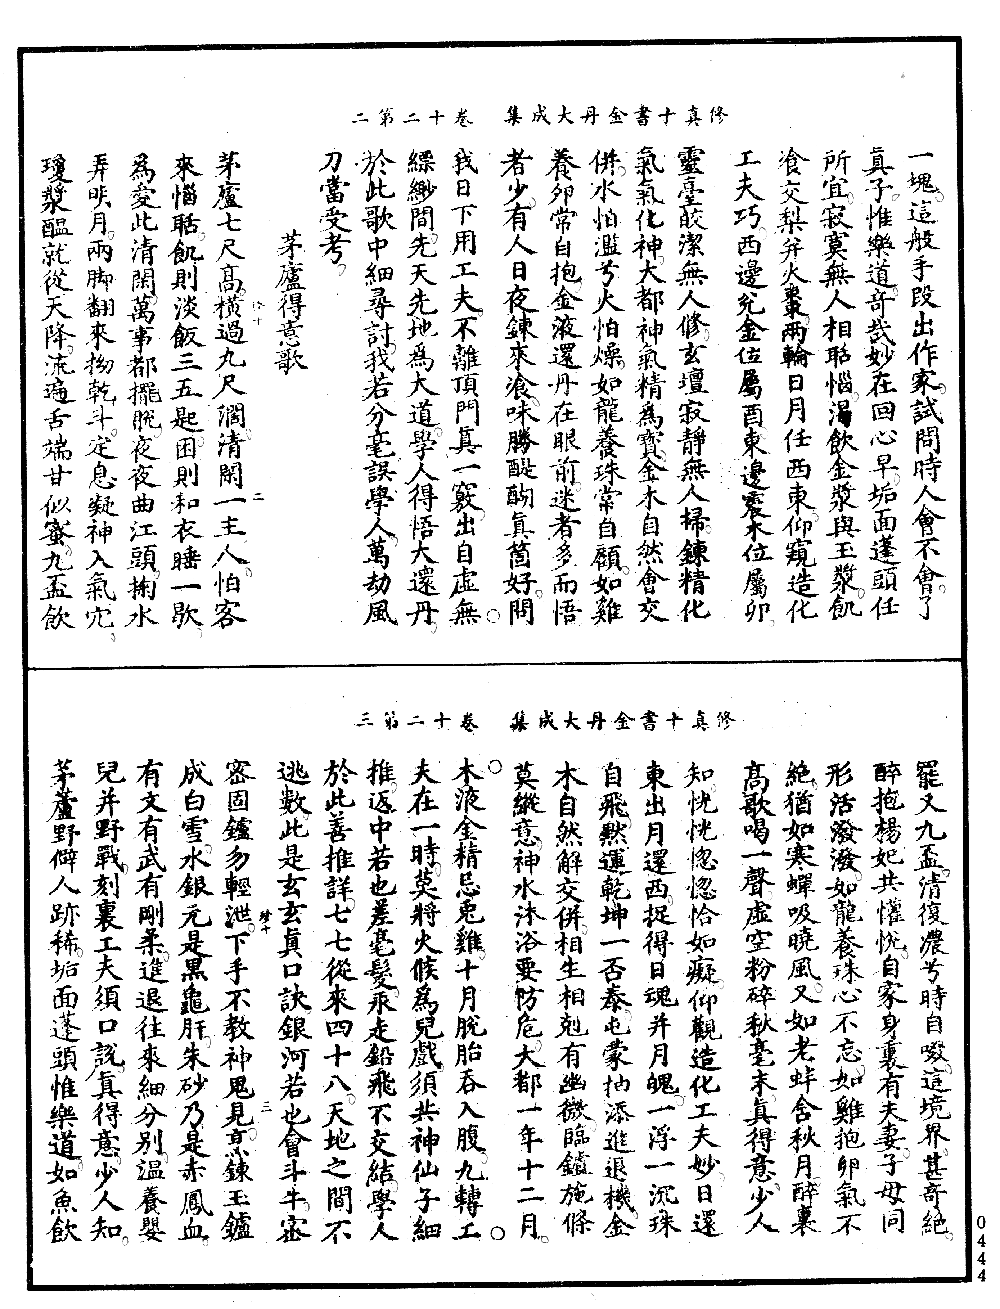 修真十書金丹大成集　卷十二第二
一塊。這般手段出作家。試問時人會不會。了
真子。惟樂道。奇哉妙在回心早。垢面蓬頭任
所宜。寂寞無人相聒惱。渴飲金漿與玉漿。飢
飡交梨并火棗。兩輪日月任西東。仰窺造化
工夫巧。西邊兌金位屬酉。東邊震木位屬卯。
靈臺皎潔無人修。玄壇寂靜無人掃。鍊精化
氣氣化神。大都神氣精為寶。金木自然會交
併。水怕濫兮火怕燥。如龍養珠常自顧。如雞
養卵常自抱。金液還丹在眼前。迷者多而悟
者少。有人日夜鍊來飡。味勝醍醐真箇好。問
我日下用工夫。不離頂門真一竅。出自虛無
縹緲間。先天先地為大道。學人得悟大還丹。
於此歌中細尋討。我若分毫誤學人。萬劫風
刀當受考。
茅廬得意歌
茅廬七尺高。橫過九尺濶。清閑一主人。怕客
來惱聒。飢則淡飯三五匙。困則和衣睡一歇。
為愛此清閑。萬事都擺脫。夜夜曲江頭。掬水
弄明月。兩脚翻來拗乾斗。定息凝神入氣穴。
瓊漿醞就從天降。流遍舌端甘似蜜。九盃飲
修真十書金丹大成集　卷十二第三
罷又九盃。清復濃兮時自啜。這境界。甚奇絕。
醉抱楊妃共懽悅。自家身裏有夫妻。子母同
形活潑潑。如龍養珠心不忘。如雞抱卵氣不
絕。猶如寒蟬吸曉風。又如老蚌含秋月。醉裏
高歌喝一聲。虛空粉碎秋毫末。真得意。少人
知。恍恍惚惚恰如癡。仰觀造化工夫妙。日還
東出月還西。捉得日魂并月魄。一浮一沉珠
自飛。默運乾坤一否泰。屯蒙抽添進退機。金
木自然解交併。相生相剋有幽微。臨鑪施條
莫縱意。神水沐浴要防危。大都一年十二月。
木液金精忌兎雞。十月脫胎吞入腹。九轉工
夫在一時。莫將火候為兒戲。須共神仙子細
推。返中若也差毫髮。汞走鉛飛不交結。學人
於此善推詳。七七從來四十八。天地之間不
逃數。此是玄玄真口訣。銀河若也會斗牛。密
密固鑪勿輕泄。下手不教神鬼見。烹鍊玉鑪
成白雪。水銀元是黑龜肝。朱砂乃是赤鳳血。
有文有武有剛柔。進退往來細分別。溫養嬰
兒并野戰。刻裏工夫須口說。真得意。少人知。
茅蘆野僻人跡稀。垢面蓬頭惟樂道。如魚飲
0444